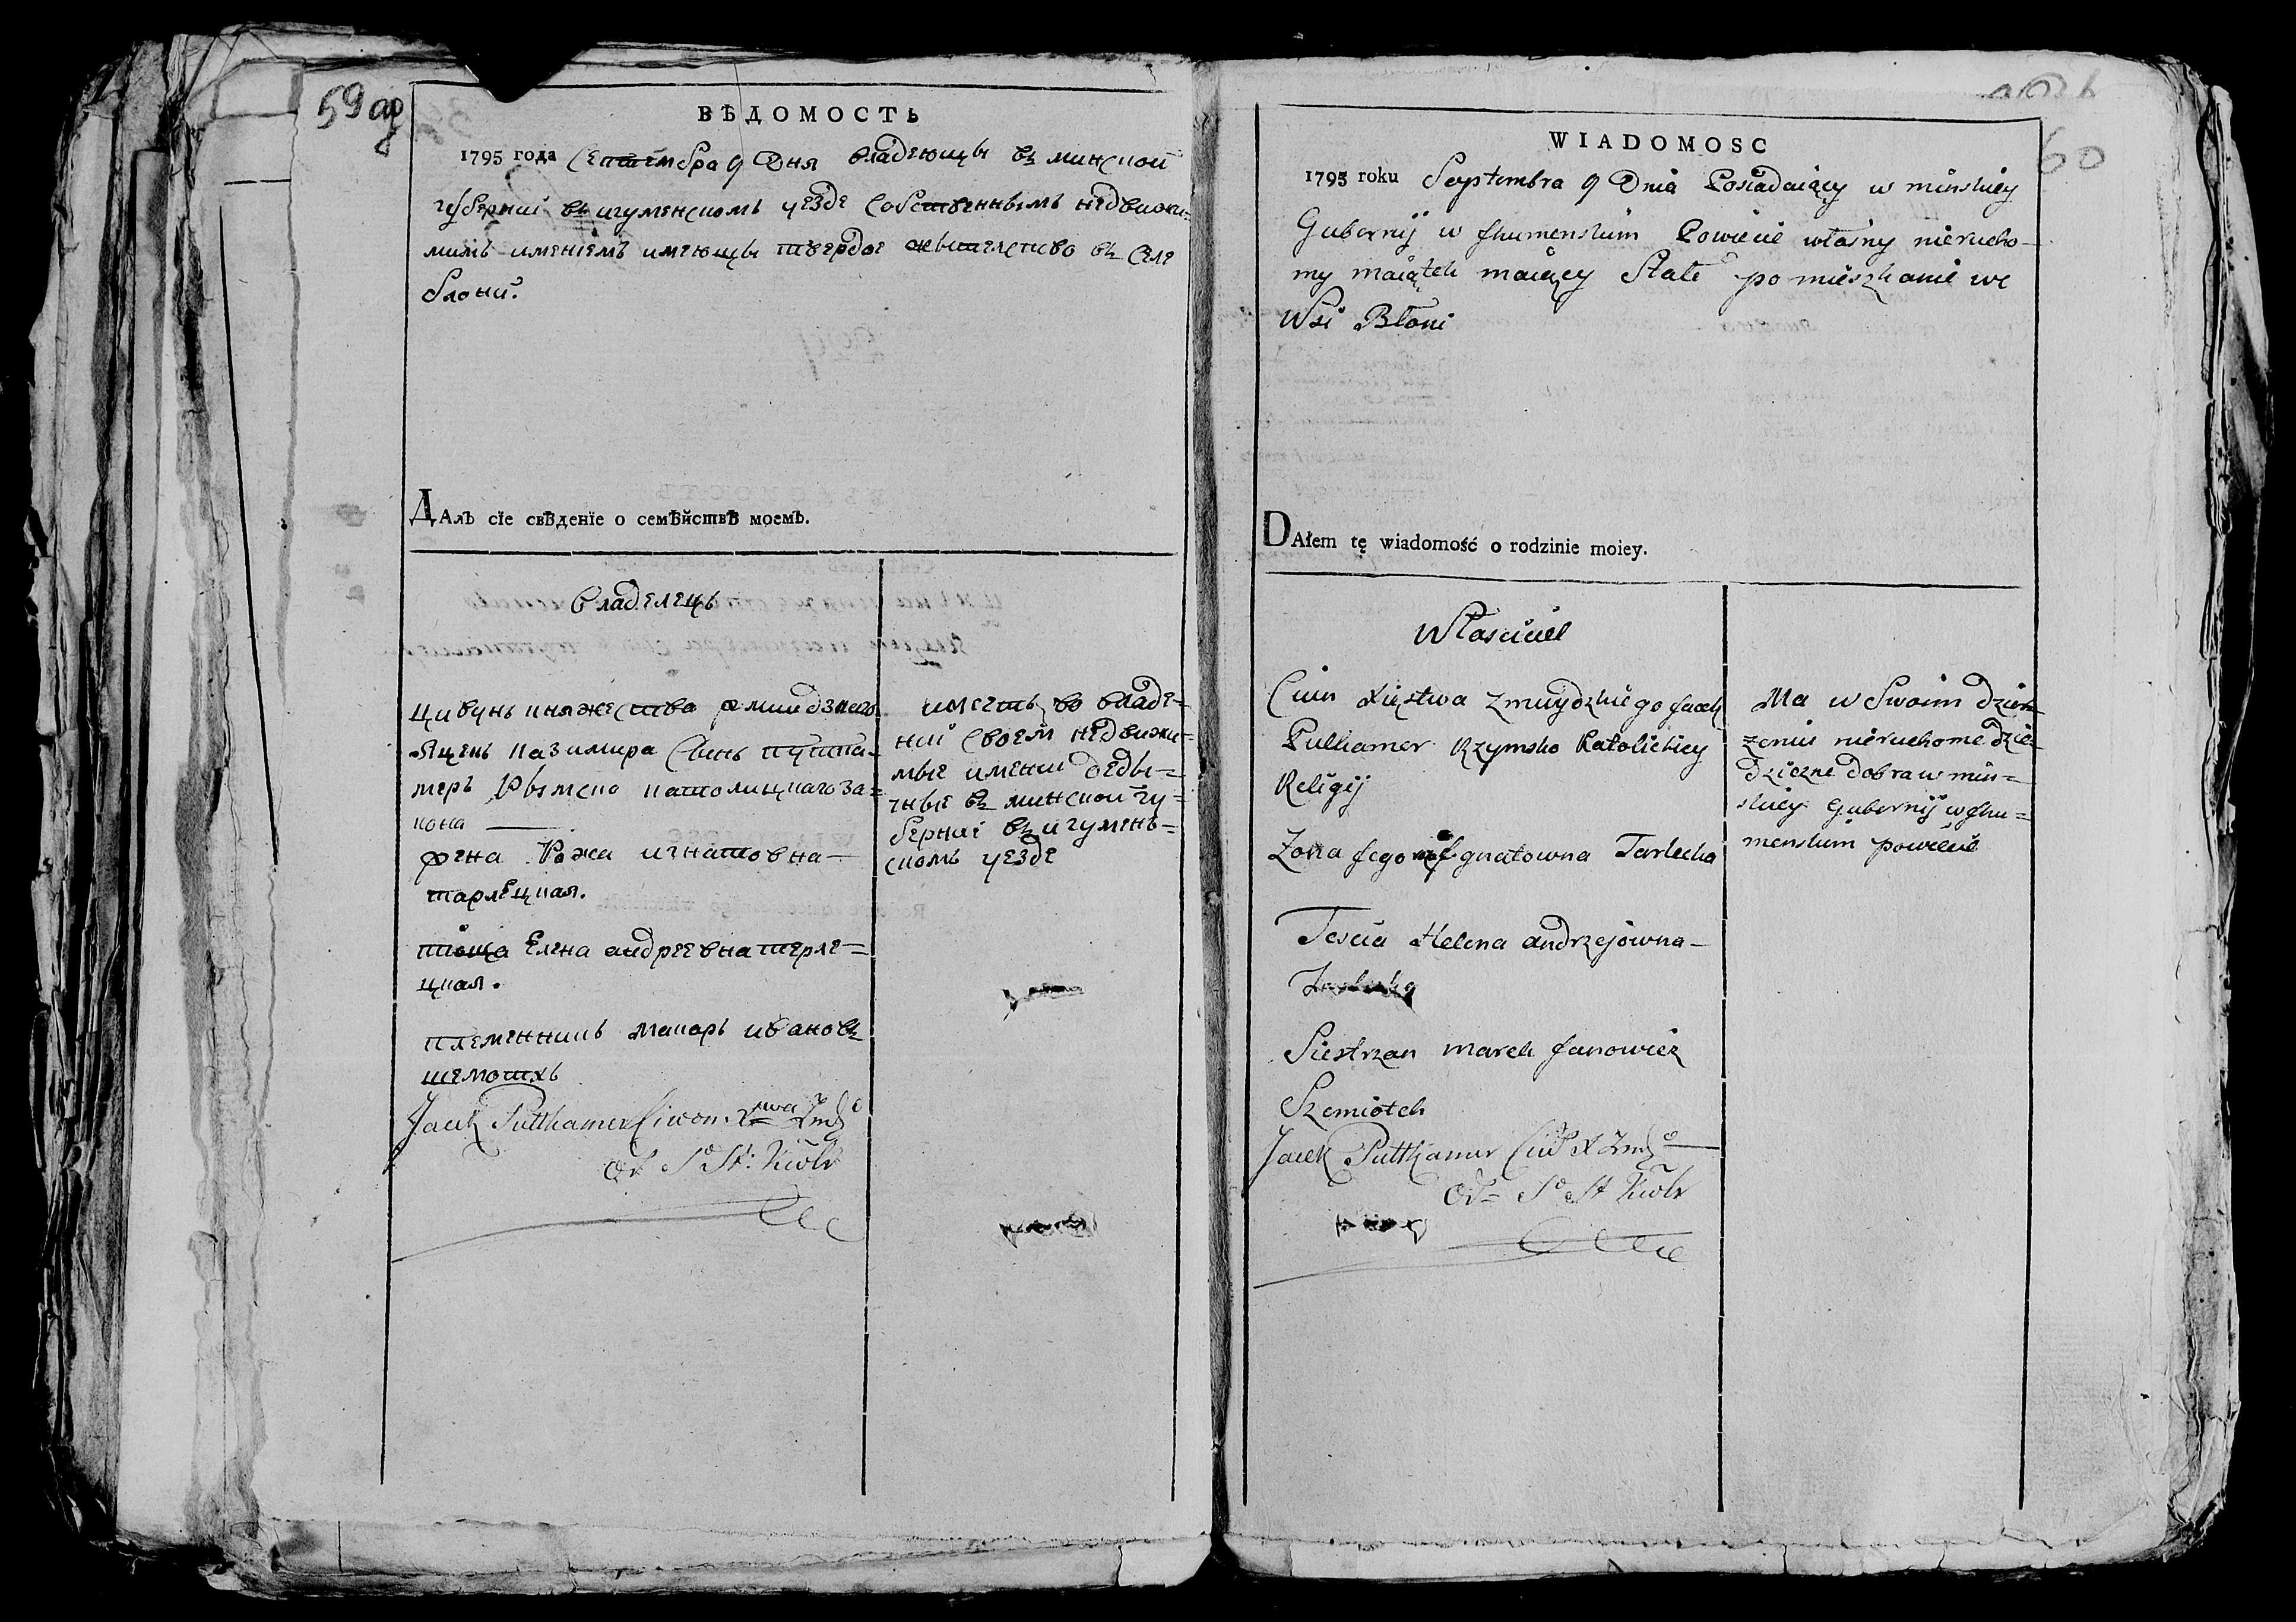 59 об
ВѢДОМОСТЬ
1795 года Септембра 9 Дня владеющы въ минской
губернии въ игуменскомъ уезде собственнымъ недвижи=
мимъ имениемъ имеющы твердое жытелство въ селе
блони.
ДАлъ сїе свѣденїе о семѣйствѣ моемъ.
владелецъ
цивунъ княжества жмuйдзкаго
Яценъ казимира сынъ путка-
меръ Рымско католицкаго за=
кона
жена Рожа игнатовна
тарлецкая.
тіоща Елена андреевна терле=
цкая.
племенникъ макаръ ивановъ
шемотхъ
имеетъ во владе=
нии своем недвижи=
мые имении деды=
чные въ минской гу=
бернии въ игумень=
скомъ уезде
Jacek Puttkamer Ciwon Xtwa Żmdo
WIADOMOSC
60
1795 roku Septembra 9 Dnia Posiadaiący w minskiey
Gubernij w Jhumenskim Powiecie własny nierucho-
my maiątek maiący Stałe pomieszkanie we
Wsi Błoni
DAłem tę wiadomość o rodzinie moiey.
Własciciel
Ciun Xięstwa Zmuydzkiego Jacek
Putkamer Rzymsko Katolickiey
Religij
Zona Jego Ignatowna Tarlecka
Tescia Helena andrzejowna-
Siestrzan marek Janowicz
Szemiotch
Ma w Swoim dzier=
zeniu nieruchome dzie=
dziczne Dobra w min=
skiey Gubernij w Jhu=
menskim powiecie
Jacek Puttkamer Ciw X Żmdo